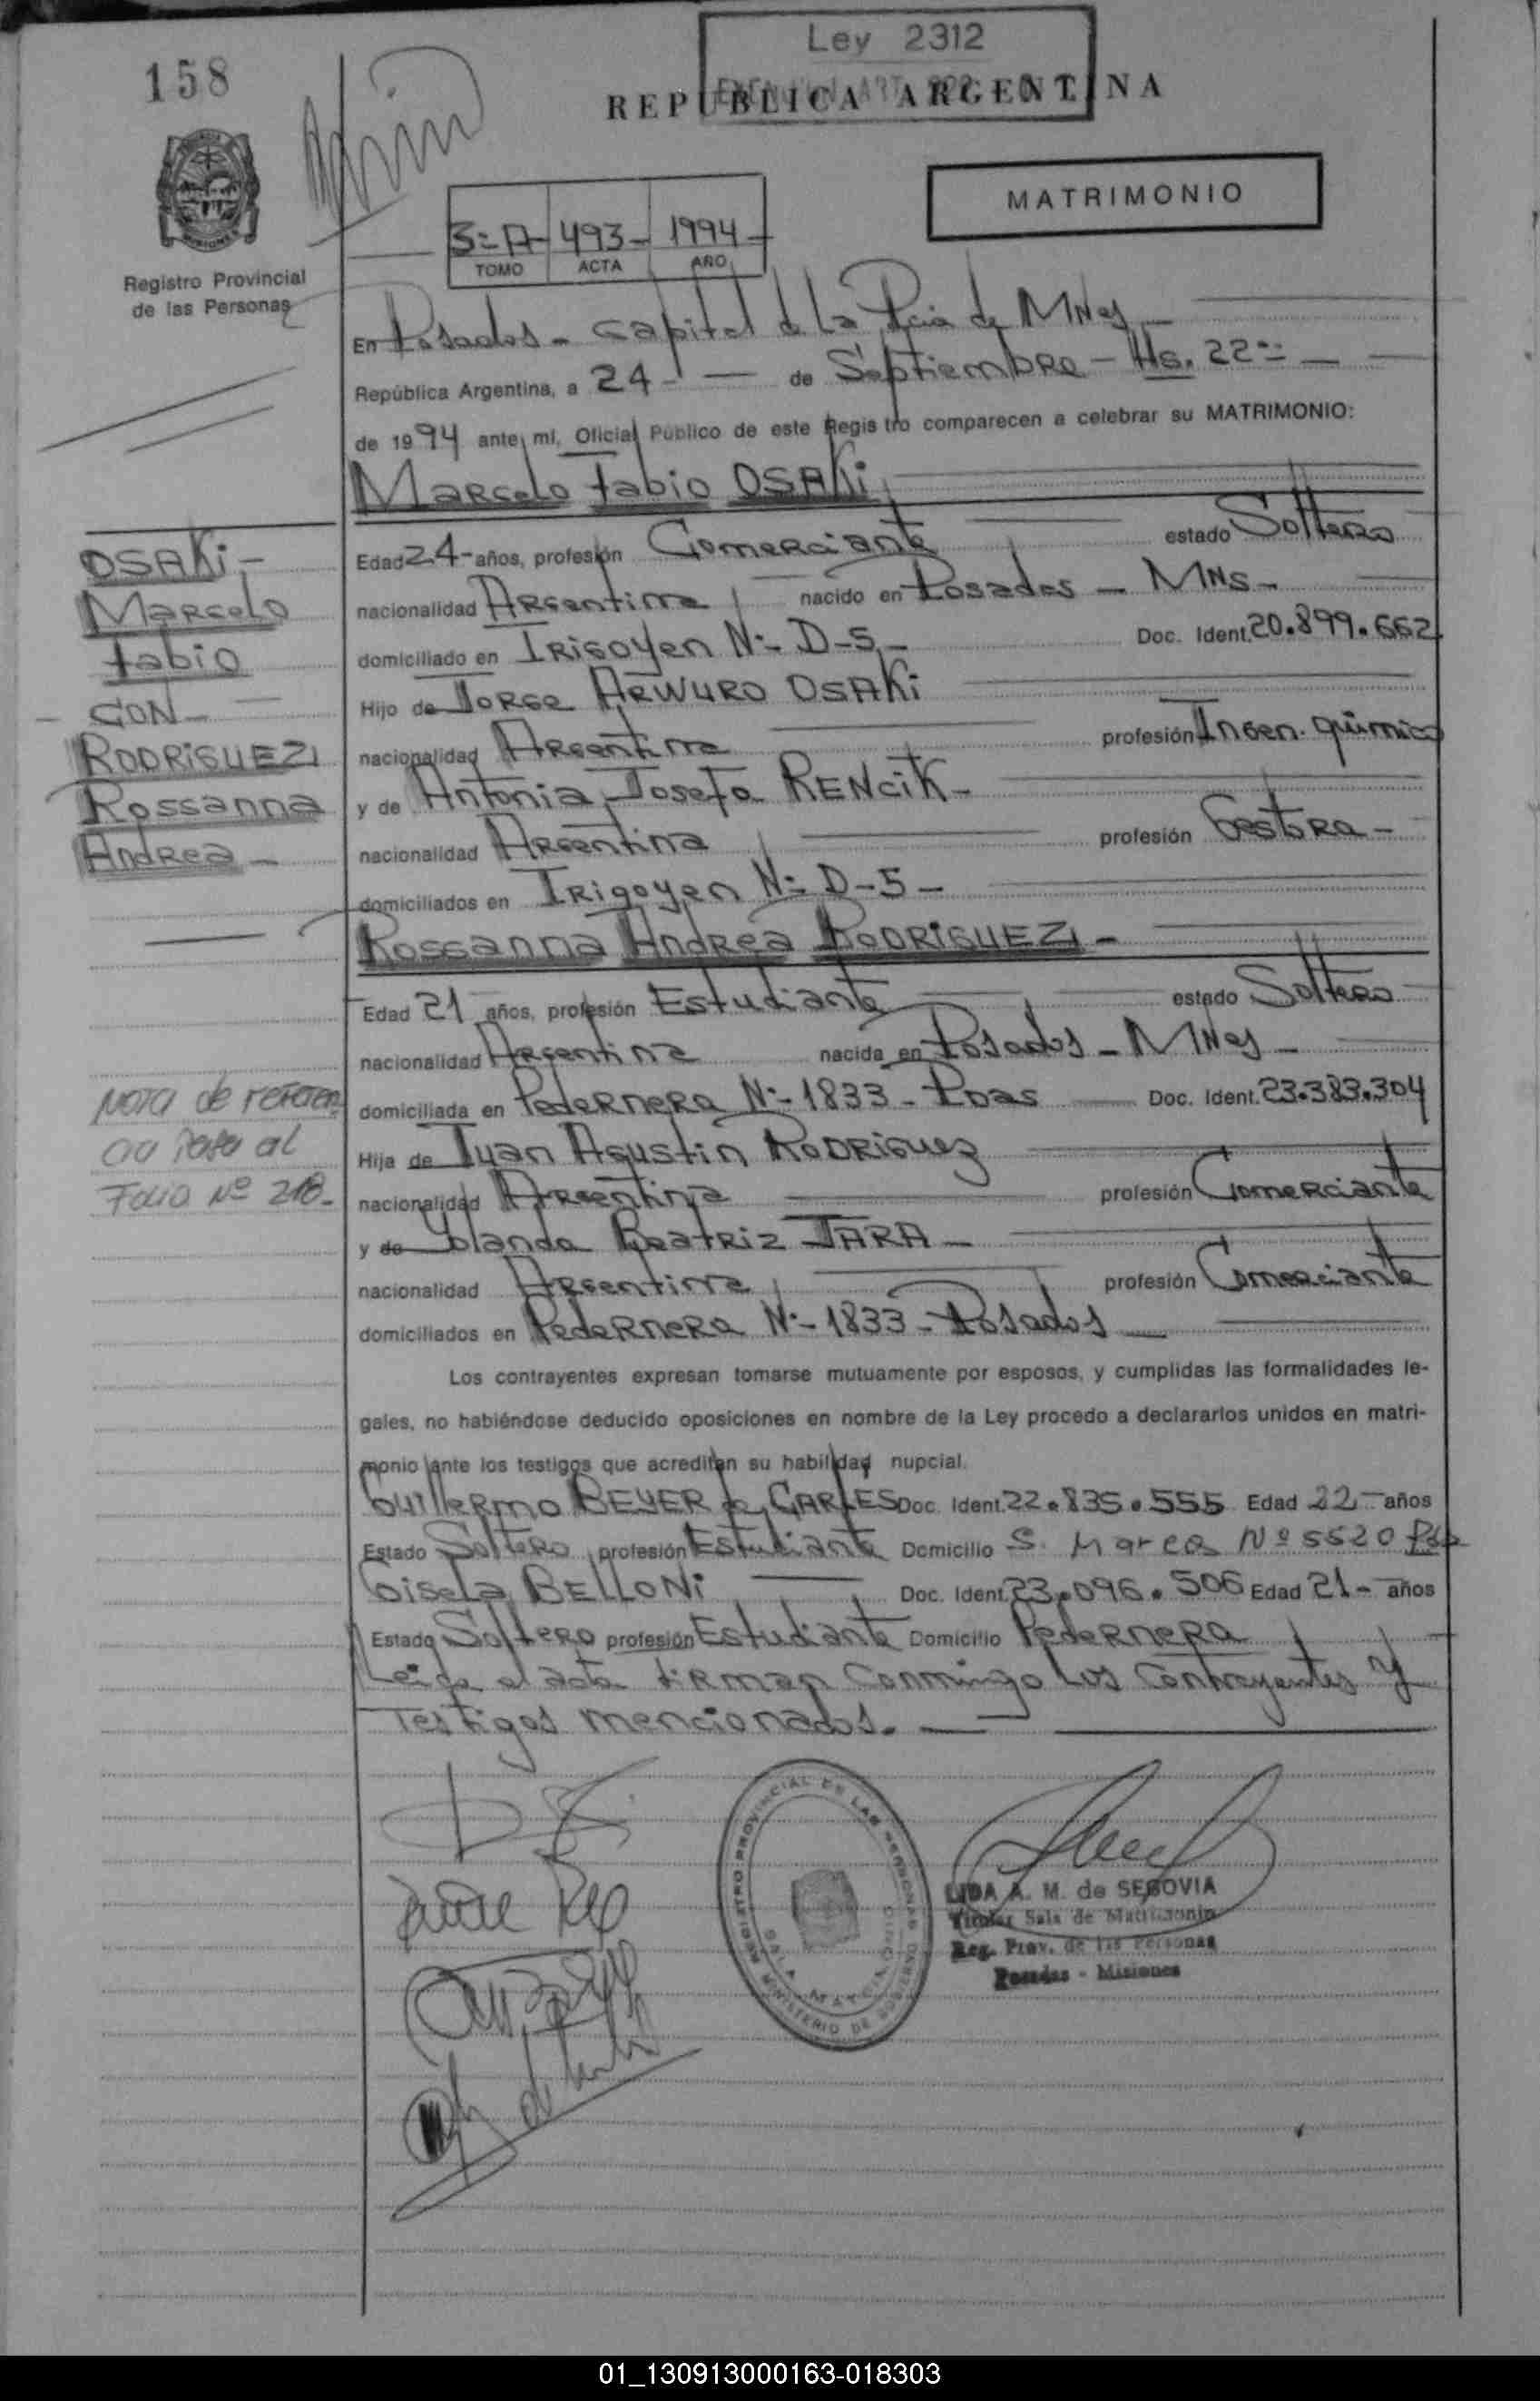 158
Ley 2312
REPUBLICA ARGENTINA
MATRIMONIO
3=A- 493- 1994-
TOMO ACTA AÑO
Registro Provincial
de las Personas
En Posadas - Capital de la Pcia de MNes -
República Argentina, a 24 - de Septiembre - Hs. 22==
de 1994 ante mi, Oficial Público de este Registro comparecen a celebrar su MATRIMONIO:
Marcelo Fabio OSAKi
Edad 24- años, profesión Comerciante estado Soltero
nacionalidad Argentina nacido en Posadas - MNS-
domiciliado en IRigoyen N:- D-5- Doc. Ident. 20.899.662
Hijo de Jorge ARWURO OSAKi
nacionalidad Argentina profesión Ingen. químico
y de Antonia Josefa RENCiK-
nacionalidad Argentina profesión Gestora-
domiciliados en IRigoyen N:- D-5-
Rossanna Andrea RODRIGUEZ -
Edad 21 años, profesión Estudiante estado Soltero
nacionalidad Argentina nacida en Posadas - MNes -
domiciliada en Pedernera N:- 1833 - Pdas Doc. Ident. 23.383.304
Hija de Juan Agustin Rodriguez
nacionalidad Argentina profesión Comerciante
y de Yolanda Beatriz JARA -
nacionalidad Argentina profesión Comerciante
domiciliados en Pedernera N:- 1833 - Posadas
Los contrayentes expresan tomarse mutuamente por esposos, y cumplidas las formalidades le-
gales, no habiéndose deducido oposiciones en nombre de la Ley procedo a declararlos unidos en matri-
monio ante los testigos que acreditan su habilidad nupcial.
Guillermo BEYER de CARLES Doc. Ident. 22.835.555 Edad 22- años
Estado Soltero profesión Estudiante Domicilio S. Marcos Nº 5520 Pdas
Gisela BELLONi Doc. Ident. 23.096.506 Edad 21- años
Estado Soltero profesión Estudiante Domicilio Pedernera
Leida el acta firman conmingo los contrayentes y
Testigos mencionados.
OSAKi -
Marcelo
Fabio
- CON -
RODRIGUEZ
Rossanna
Andrea -
Nota de referen
cia pasa al
Folio Nº 218-
REGISTRO PROVINCIAL DE LAS PERSONAS
MINISTERIO DE GOBIERNO
LIDA A. M. de SEGOVIA
Titular Sala de Matrimonio
Reg. Prov. de las Personas
Posadas - Misiones
01_130913000163-018303